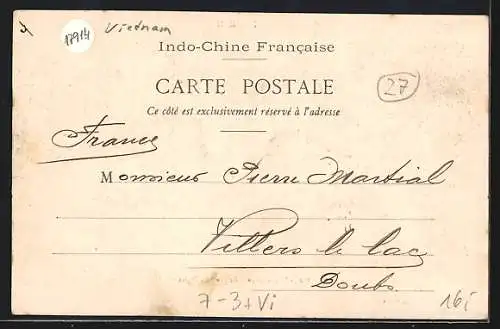 17914
Vietnam
Indo-Chine Française
CARTE POSTALE
27
Ce côté est exclusivement réservé à l'adresse
France
Monsieur Pierre Martial
Villers le lac
Doubs
7-3+Vi